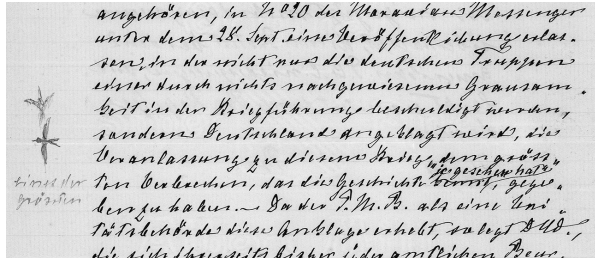 angehören, in No 20 des Moravian Messenger
unter dem 28. Sept. eine Veröffentlichung erlas-
sen, in der nicht nur die deutschen Truppen
einer durch nichts nachgewiesenen Grausam-
keit in der Kriegführung beschuldigt werden,
sondern Deutschland angeklagt wird, die
Veranlassung zu diesem Kriege, „dem gröss-
ten Verbrechen, das die Geschichte kennt, gege-
je gesehen hat"
ben zu haben. Da der P.M.B. als eine Uni-
tätsbehörde diese Anklage erhebt, so legt DUD.,
die sich ihrerseits bisher jeder amtlichen Beur-
eines der
grössten